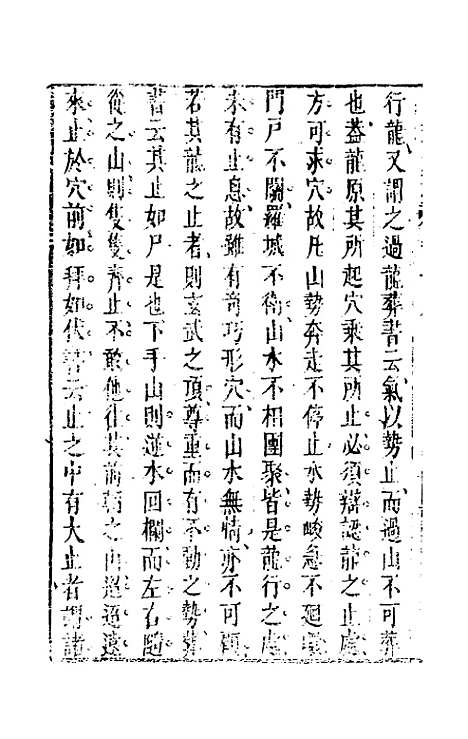 行龍又謂之過龍葬書云氣以勢止而過山不可葬
也蓋龍原其所起穴乘其所止必須辯認龍之止處
方可求穴故凡山勢奔走不停止水勢峻急不廻
門戸不關羅城不衛山水不相團聚皆是龍行之處
未有止息故雖有竒巧形穴而山水無情亦不可
若其龍之止者則玄武之頂尊重而有不動之勢葬
書云其止如尸是也下手山則逆水回欄而左右隨
從之山則隻隻齊止不敢他往其前朝之山迢迢遠
來止於穴前如拜如伏書云止之中有大止者謂諸